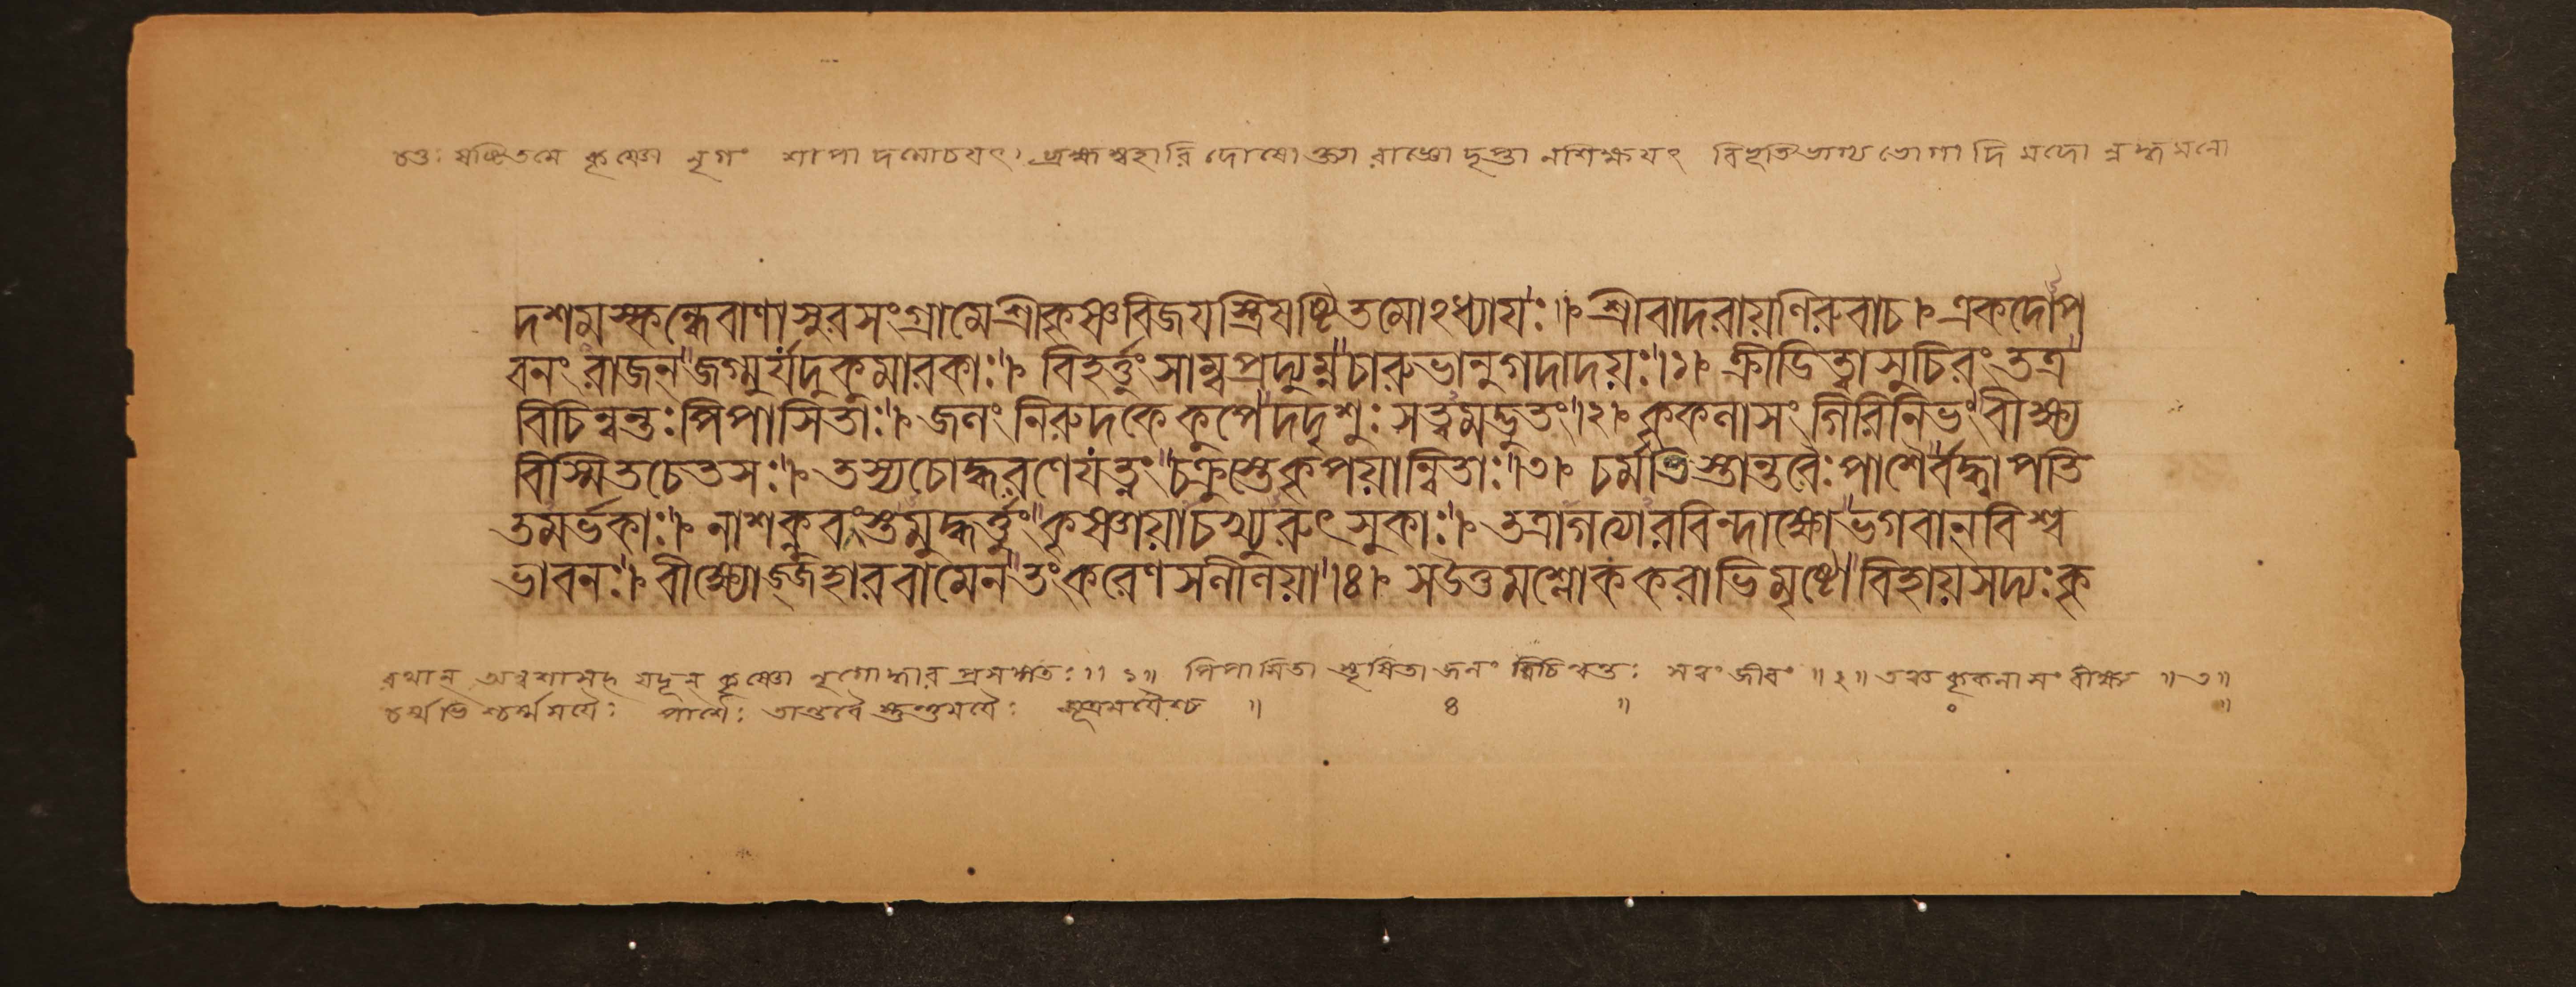 চতুঃষষ্টিতমে কৃষ্ণো নৃগং শাপাদমোচযৎ। ব্রহ্মস্বহারিদোষোক্ত্যা রাজ্ঞো দৃপ্তানশিক্ষযৎ বিভূতিভাগ্য ভোগাদি মদোন্নদ্ধমনো
দশমস্কন্ধেবাণাসুরসংগ্রামেশ্রীকৃষ্ণবিজযস্ত্রিষষ্টিতমোঽধ্যাযঃ।। শ্রীবাদরায়ণিরুবাচ। একদোপ
বনং রাজন্ জগ্মুর্যদুকুমারকাঃ। বিহর্ত্তুং সাম্বপ্রদ্যুম্নচারুভানুগদাদয়ঃ।১। ক্রীডিত্বাসুচিরং তত্র
বিচিন্বন্তঃ পিপাসিতাঃ। জলং নিরুদকে কূপে দদৃশুঃ সত্ত্বমদ্ভুতং।২। কৃকলাসং গিরিনিভং বীক্ষ্য
বিস্মিতচেতসঃ। তস্যচোদ্ধরণেযত্নং চক্রুস্তেকৃপয়ান্বিতাঃ।৩। চর্মভিস্তান্তবৈঃ পাশৈর্বদ্ধ্বাপতি
তমর্ভকাঃ। নাশক্নুবংস্তমুদ্ধর্ত্তুং কৃষ্ণায়াচখ্যুরুৎসুকাঃ। তত্রাগত্যারবিন্দাক্ষোভগবান্ বিশ্ব
ভাবনঃ। বীক্ষ্যোজ্জহারবামেন তং করেণ সলীলয়া।৪। সউত্তমশ্লোককরাভিমৃষ্টোবিহায়সদ্যঃকৃ
রথান্ অন্বশাসহ যদূন্ কৃষ্ণো নৃগোদ্ধার প্রসঙ্গতঃ।। ১।। পিপাসিতা স্তৃষিতা জলং বিচিন্বন্তঃ সত্ত্বং জীবং ॥২॥ তত্র কৃকলাসং বীক্ষ্য ॥৩॥
চর্ম্মভি শ্চর্ম্মময়ৈঃ পাশৈঃ তান্তবৈ স্তন্তুময়ৈঃ সূত্রময়ৈশ্চ ॥ ৪ ॥ ০ ॥